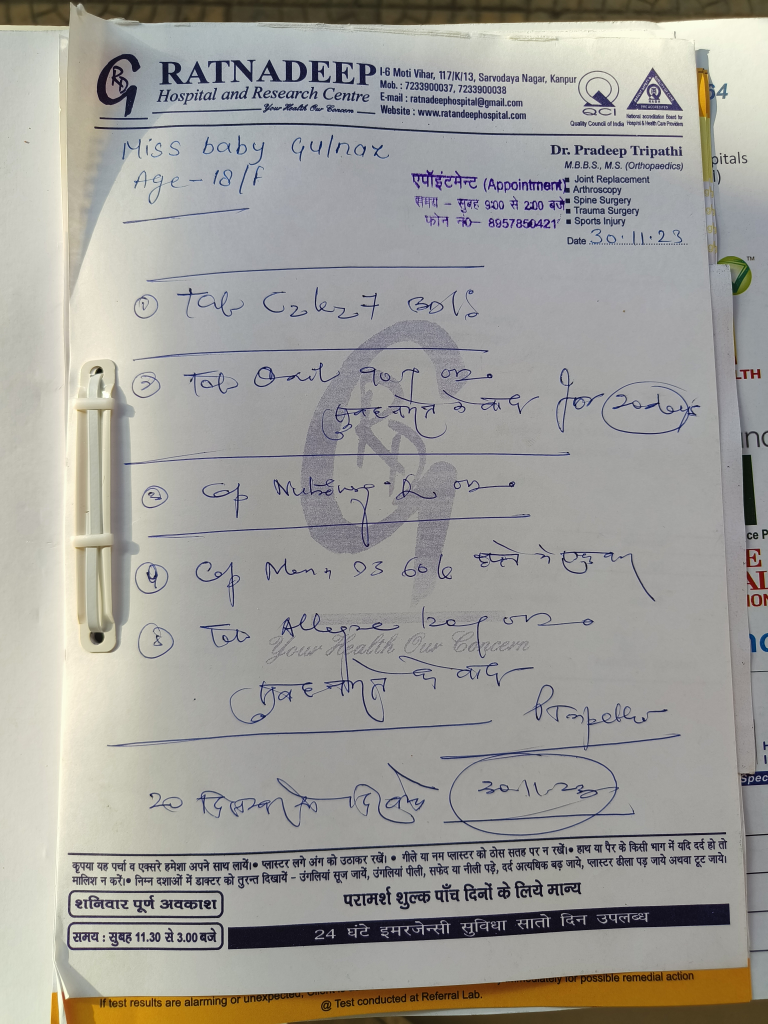 RATNADEEP
Hospital and Research Centre
Your Health Our Concern
I-6 Moti Vihar, 117/K/13, Sarvodaya Nagar, Kanpur
Mob. : 7233900037, 7233900038
E-mail : ratnadeephospital@gmail.com
Website : www.ratandeephospital.com
QCI
Quality Council of India
National Accreditation Board for
Hospital & Health Care Providers
Miss baby Gulnaz
Age - 18/F
Dr. Pradeep Tripathi
M.B.B.S., M.S. (Orthopaedics)
Joint Replacement
Arthroscopy
Spine Surgery
Trauma Surgery
Sports Injury
एपॉइंटमेन्ट (Appointment)
समय - सुबह 9:00 से 2:00 बजे
फोन नं०- 8957850421
Date 30.11.23
① Tab
② Tab
सुबह नाश्ते के बाद for 20 days
③ Cap
④ Cap D3 60k हफ्ते में एक बार
⑤ Tab Allegra 120
Your Health Our Concern
सुबह नाश्ते के बाद
20 दिसम्बर को दिखाये 30.11.23
कृपया यह पर्चा व एक्सरे हमेशा अपने साथ लायें।• प्लास्टर लगे अंग को उठाकर रखें। • गीले या नम प्लास्टर को ठोस सतह पर न रखें।• हाथ या पैर के किसी भाग में यदि दर्द हो तो
मालिश न करें।• निम्न दशाओं में डाक्टर को तुरन्त दिखायें - उंगलियां सूज जायें, उंगलियां पीली, सफेद या नीली पड़े, दर्द अत्यधिक बढ़ जाये, प्लास्टर ढीला पड़ जाये अथवा टूट जाये।
शनिवार पूर्ण अवकाश
परामर्श शुल्क पाँच दिनों के लिये मान्य
समय : सुबह 11.30 से 3.00 बजे
24 घंटे इमरजेन्सी सुविधा सातो दिन उपलब्ध
for possible remedial action
If test results are alarming or unexpected,
@ Test conducted at Referral Lab.